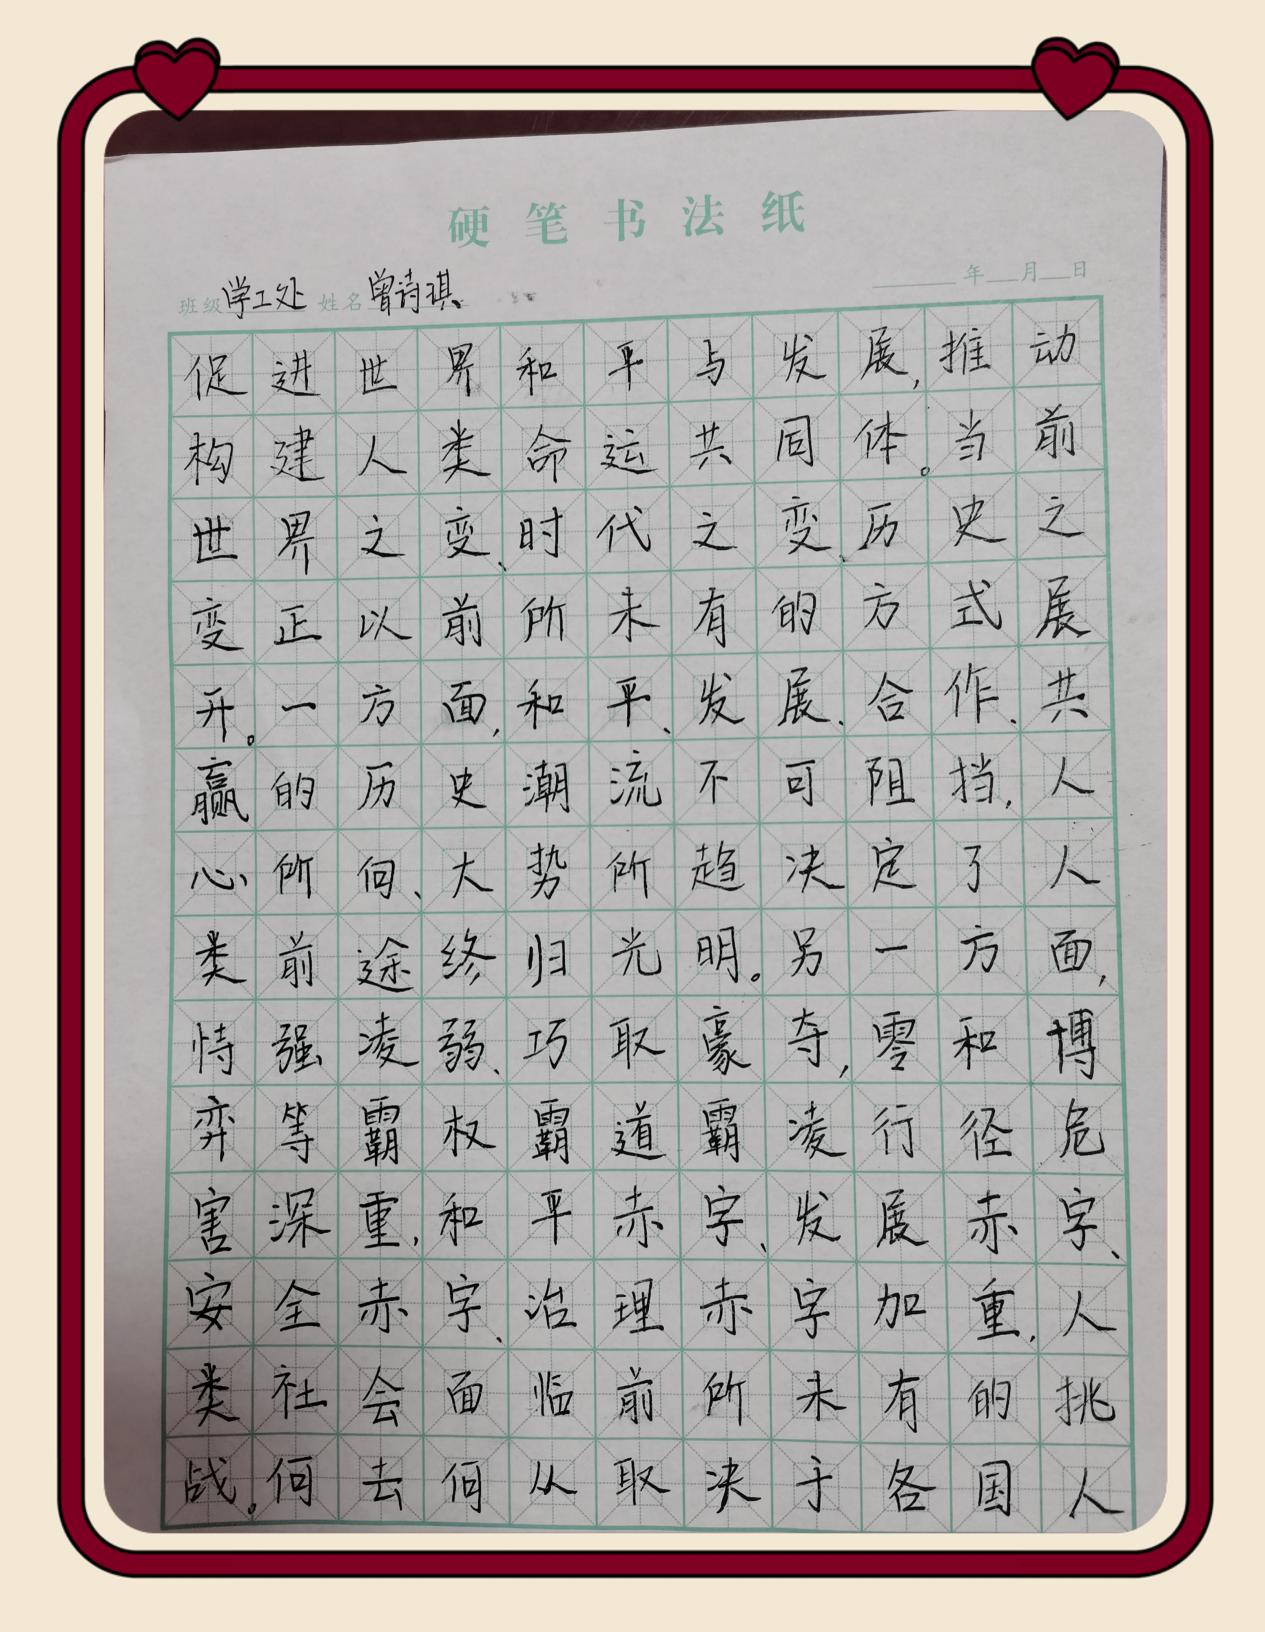 硬笔书法纸
班级 学工处 姓名 曾诗琪 年 月 日
促进世界和平与发展,推动
构建人类命运共同体。当前
世界之变、时代之变、历史之
变正以前所未有的方式展
开。一方面,和平、发展、合作、共
赢的历史潮流不可阻挡,人
心所向、大势所趋决定了人
类前途终归光明。另一方面,
恃强凌弱、巧取豪夺,零和博
弈等霸权霸道霸凌行径危
害深重,和平赤字、发展赤字、
安全赤字、治理赤字加重,人
类社会面临前所未有的挑
战。何去何从取决于各国人